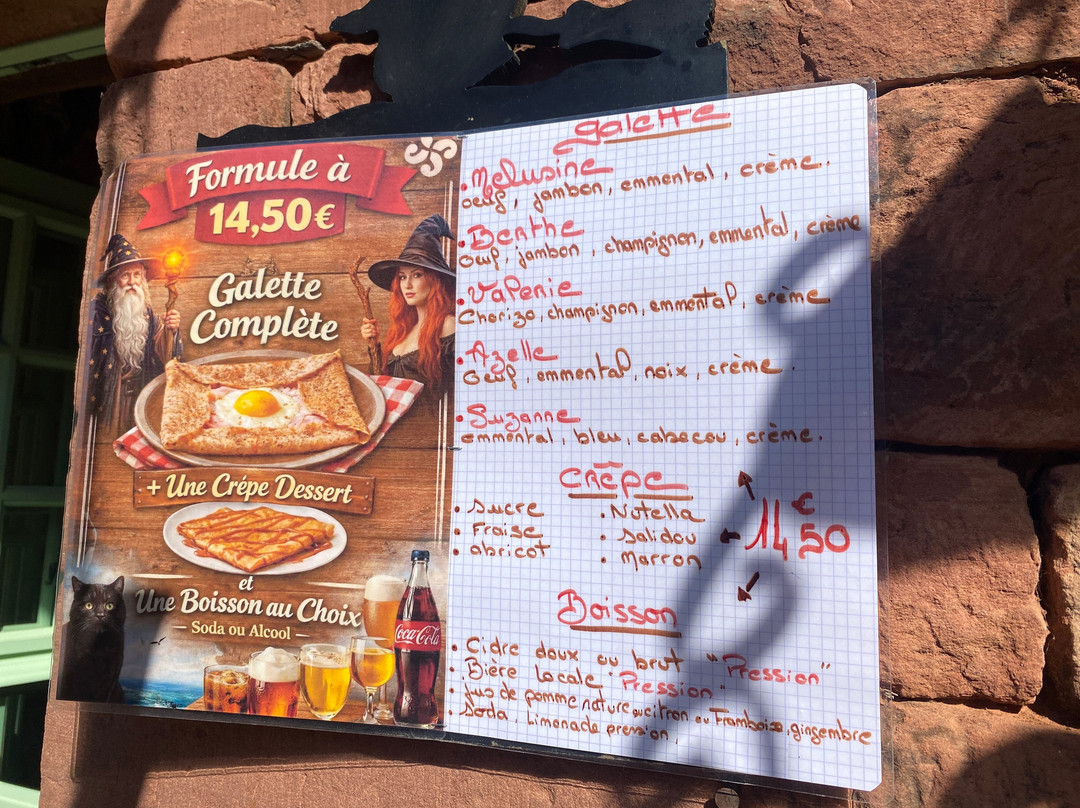 Formule à
14,50€
Galette
Complète
+ Une Crépe Dessert
et
Une Boisson au Choix
— Soda ou Alcool —
Coca-Cola
Galette
• Melusine
Oeuf, jambon, emmental, crème.
• Berthe
Oeuf, jambon, champignon, emmental, crème
• Valerie
Chorizo, champignon, emmental, crème
• Azelle
Oeuf, emmental, noix, crème.
• Suzanne
emmental, bleu, cabecou, crème.
Crêpe
• Sucre
• Fraise
• abricot
• Nutella
• Salidou
• Marron
14€50
Boisson
• Cidre doux ou brut "Pression"
• Bière Locale "Pression"
• Jus de pomme nature ou citron ou Framboise, gingembre
• Soda, Limonade pression,